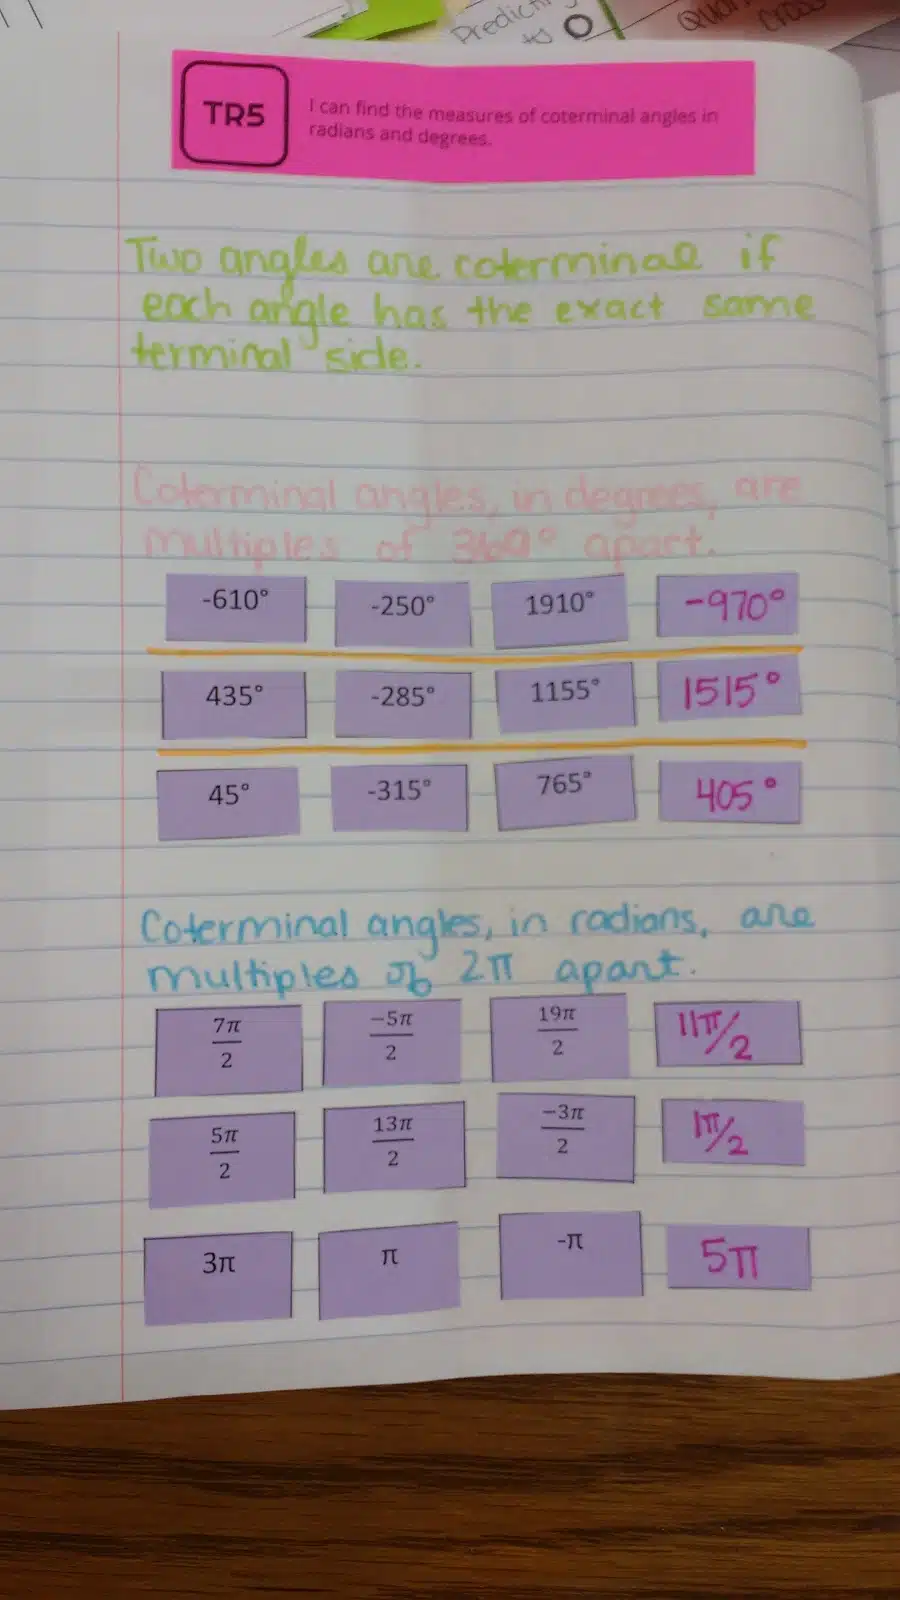 Predicting
to
Cross
TR5
I can find the measures of coterminal angles in
radians and degrees.
Two angles are coterminal if
each angle has the exact same
terminal side.
Coterminal angles, in degrees, are
multiples of 360° apart.
-610° -250° 1910° -970°
435° -285° 1155° 1515°
45° -315° 765° 405°
Coterminal angles, in radians, are
multiples of 2π apart.
7π/2 -5π/2 19π/2 11π/2
5π/2 13π/2 -3π/2 1π/2
3π π -π 5π